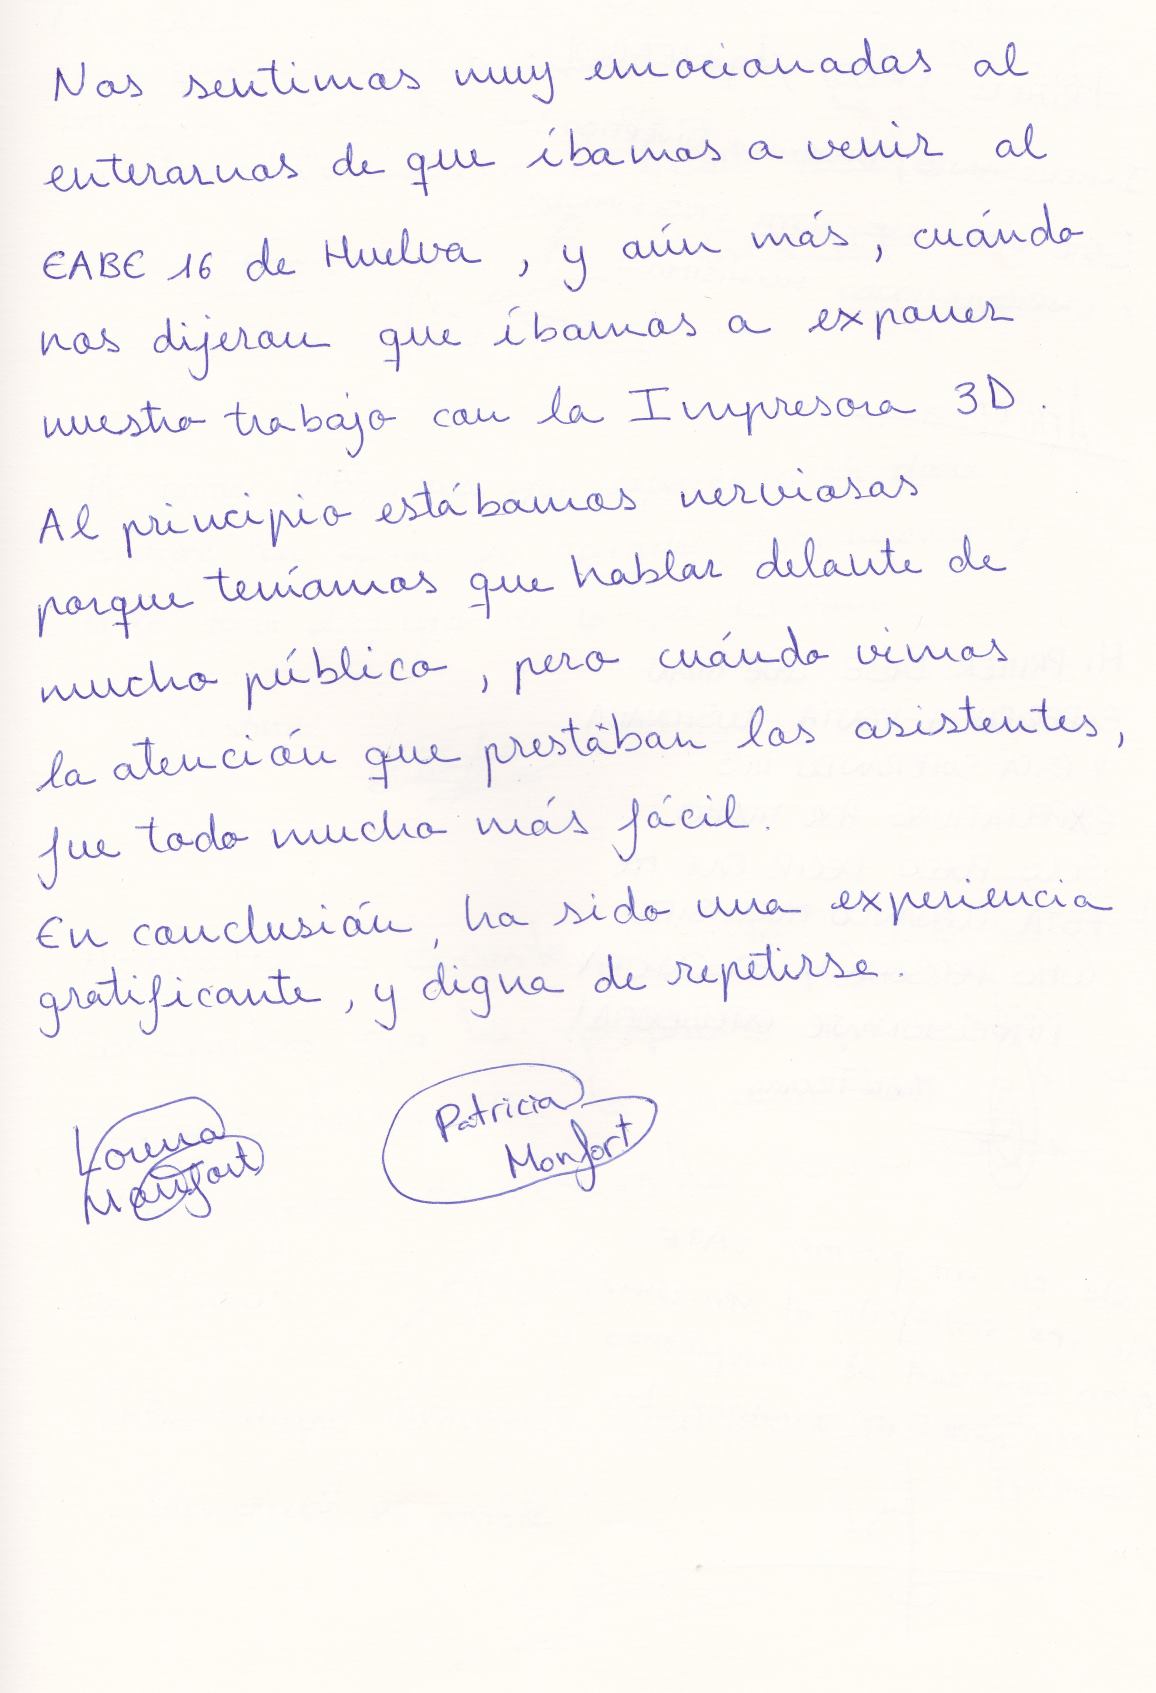 Nos sentimos muy emocionadas al
enterarnos de que íbamos a venir al
EABE 16 de Huelva, y aún más, cuándo
nos dijeron que íbamos a exponer
nuestro trabajo con la Impresora 3D.
Al principio estábamos nerviosas
porque teníamos que hablar delante de
mucho público, pero cuándo vimos
la atención que prestaban los asistentes,
fue todo mucho más fácil.
En conclusión, ha sido una experiencia
gratificante, y digna de repetirse.
Lorena Patricia
Monfort Monfort